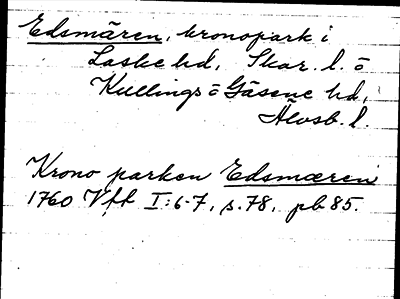 Edsmären, kronopark i
Laske hd, Skar. l. o
Kullings o Gäsene hd,
Älvsb. l.
Krono parken Edsmæren
1760 Vft I:6-7, s. 78, pb 85.